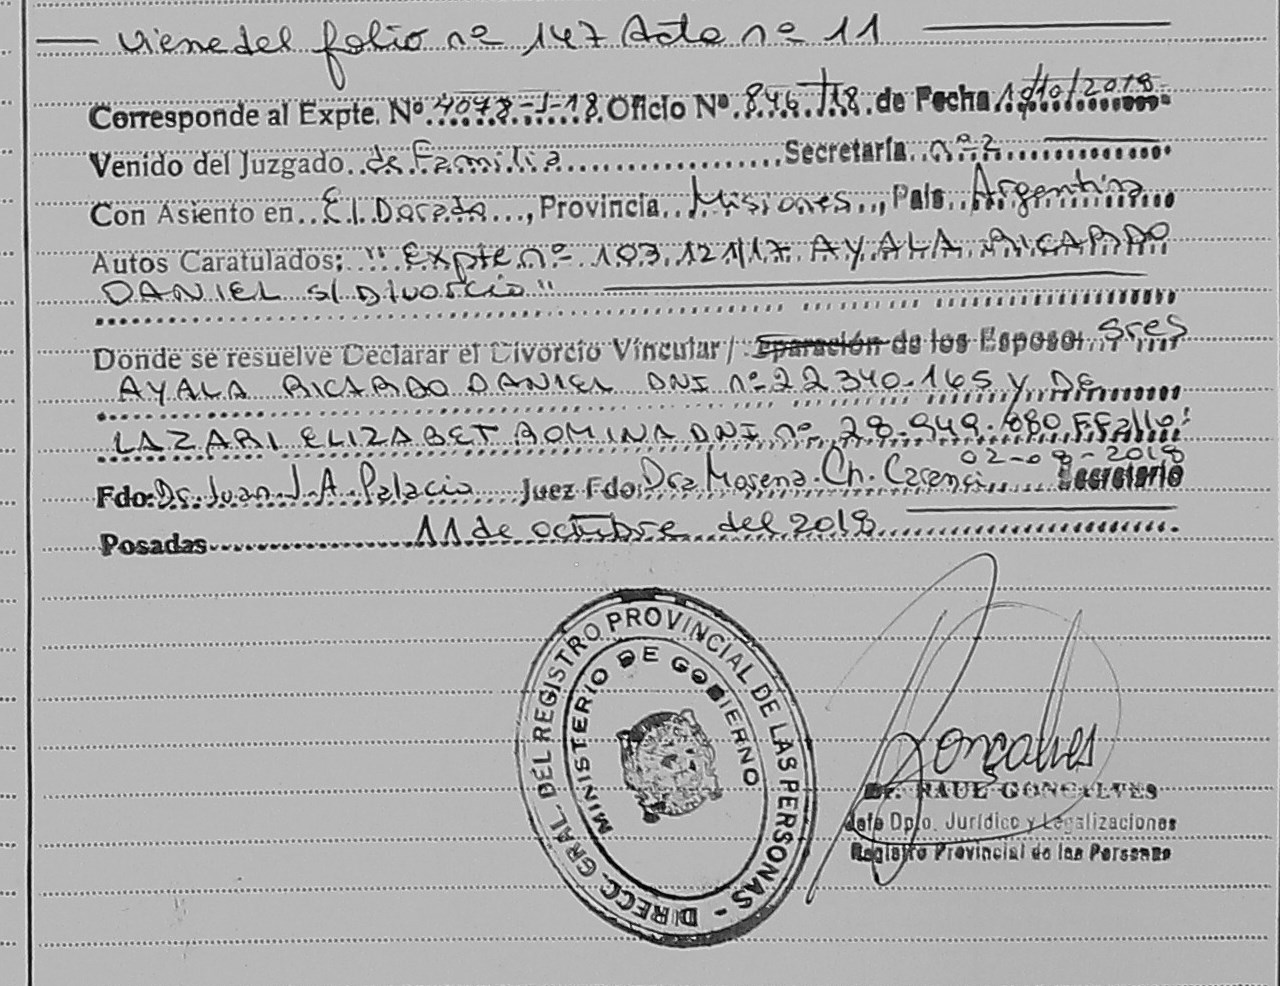 Viene del folio nº 147 Acta nº 11
Corresponde al Expte. Nº 4078-J-18 Oficio Nº 846/18 de Fecha 10/10/2018
Venido del Juzgado de Familia Secretaría nº 2
Con Asiento en El Dorado, Provincia Misiones, País Argentina
Autos Caratulados: "Expte nº 103.121/17 AYALA RICARDO
DANIEL s/ Divorcio"
Donde se resuelve Declarar el Divorcio Vincular / eparación de los Esposos Sres
AYALA RICARDO DANIEL DNI nº 22 340.165 y DE
LAZARI ELIZABET ROMINA DNI nº 28.949.080 FFallo:
02-08-2018
Fdo: Dr. Juan J. A. Palacio Juez Fdo Dra Morena Ch. Secretario
Posadas 11 de octubre del 2018
DIRECC. GRAL. DEL REGISTRO PROVINCIAL DE LAS PERSONAS -
MINISTERIO DE GOBIERNO
Gonçalves
Dr. RAUL GONCALVES
Jefe Dpto. Jurídico y Legalizaciones
Registro Provincial de las Personas